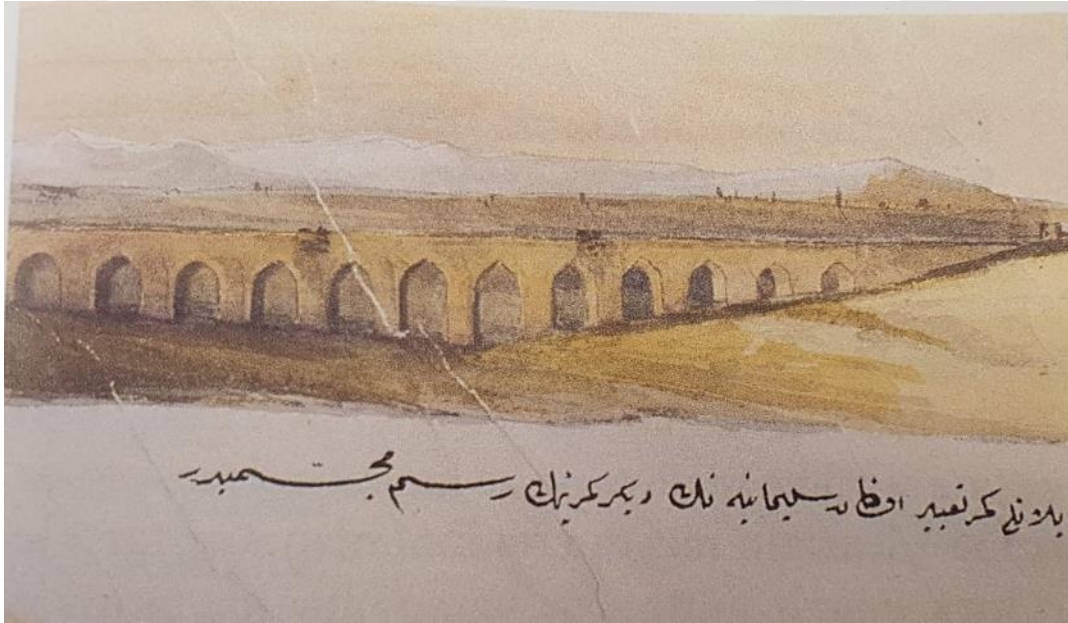 یلانلی کمر تعبیر اولنان سلیمانیه نك دیكر کمرینك رسم مجسمیدر